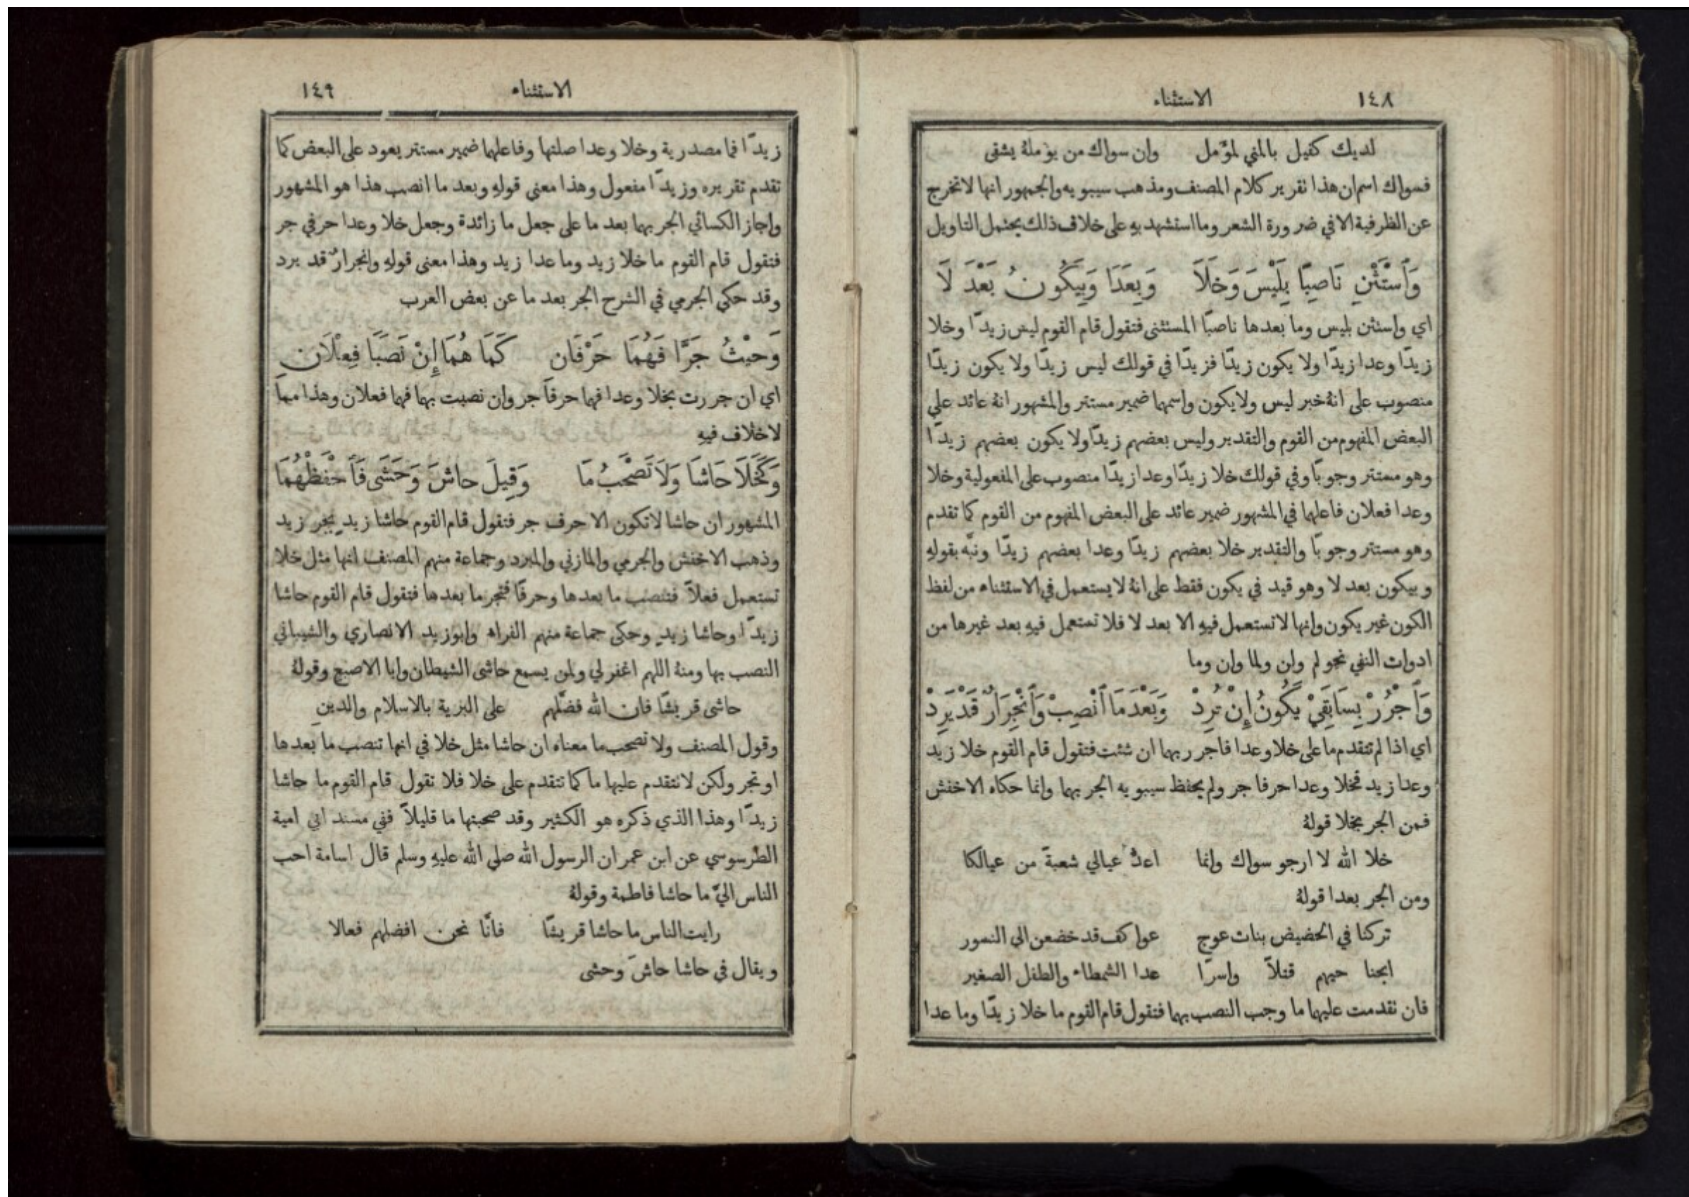 ١٤٨
الاستثناء
لديك كفيل بالمنى لمؤمل وان سواك من يؤملهُ يشقى
فسواك اسم ان هذا نقرير كلام المصنف ومذهب سيبويه والجمهور انها لا تخرج
عن الظرفية الا في ضرورة الشعر وما استشهد بهِ على خلاف ذلك يحتمل التاويل
وَٱسْتَثْنِ نَاصِبًا بِلَيْسَ وَخَلَا وَبِعَدَا وَبِيَكُونُ بَعْدَ لَا
اي واستثن بليس وما بعدها ناصبًا المستثنى فتقول قام القوم ليس زيدًا وخلا
زيدًا وعدا زيدًا ولا يكون زيدًا فزيدًا في قولك ليس زيدًا ولا يكون زيدًا
منصوب على انهُ خبر ليس ولا يكون واسمها ضمير مستتر والمشهور انهُ عائد على
البعض المفهوم من القوم والتقدير وليس بعضهم زيدًا ولا يكون بعضهم زيدًا
وهو مستتر وجوبًا وفي قولك خلا زيدًا وعدا زيدًا منصوب على المفعولية وخلا
وعدا فعلان فاعلهما في المشهور ضمير عائد على البعض المفهوم من القوم كما تقدم
وهو مستتر وجوبًا والتقدير خلا بعضهم زيدًا وعدا بعضهم زيدًا ونبَّه بقولهِ
وبيكون بعد لا وهو قيد في يكون فقط على انهُ لا يستعمل في الاستثناء من لفظ
الكون غير يكون وانها لا تستعمل فيهِ الا بعد لا فلا تستعمل فيهِ بعد غيرها من
ادوات النفي نحو لم ولن ولما وان وما
وَٱجْرُرْ بِسَابِقَيْ يَكُونُ إِنْ تُرِدْ وَبَعْدَ مَا ٱنْصِبْ وَٱنْجِرَارٌ قَدْ يَرِدْ
اي اذا لم تتقدم ما على خلا وعدا فاجرر بهما ان شئت فتقول قام القوم خلا زيد
وعدا زيد فخلا وعدا حرفا جر ولم يحفظ سيبويه الجر بهما وانما حكاه الاخفش
فمن الجر بخلا قولهُ
خلا الله لا ارجو سواك وانما اعدُّ عيالي شعبةً من عيالكا
ومن الجر بعدا قولهُ
تركنا في الحضيض بنات عوج عواكف قد خضعن الى النسور
ابحنا حيهم قتلاً واسرًا عدا الشمطاء والطفل الصغير
فان نقدمت عليهما ما وجب النصب بهما فتقول قام القوم ما خلا زيدًا وما عدا
١٤٩
الاستثناء
زيدًا فما مصدرية وخلا وعدا صلتها وفاعلهما ضمير مستتر يعود على البعض كما
تقدم تقريره وزيدًا مفعول وهذا معنى قولهِ وبعد ما انصب هذا هو المشهور
واجاز الكسائي الجر بهما بعد ما على جعل ما زائدة وجعل خلا وعدا حرفي جر
فتقول قام القوم ما خلا زيد وما عدا زيد وهذا معنى قولهِ وانجرارٌ قد يرد
وقد حكى الجرمي في الشرح الجر بعد ما عن بعض العرب
وَحَيْثُ جَرَّا فَهُمَا حَرْفَانِ كَمَا هُمَا إِنْ نَصَبَا فِعْلَانِ
اي ان جررت بخلا وعدا فهما حرفا جر وان نصبت بهما فهما فعلان وهذا مما
لا خلاف فيهِ
وَكَخَلَا حَاشَا وَلَا تَصْحَبُ مَا وَقِيلَ حَاشَ وَحَشَى فَٱحْفَظْهُمَا
المشهور ان حاشا لا تكون الا حرف جر فتقول قام القوم حاشا زيد بجر زيد
وذهب الاخفش والجرمي والمازني والمبرد وجماعة منهم المصنف انها مثل خلا
تستعمل فعلاً فتنصب ما بعدها وحرفًا فتجر ما بعدها فتقول قام القوم حاشا
زيدًا وحاشا زيدٍ وحكى جماعة منهم الفراء وابو زيد الانصاري والشيباني
النصب بها ومنهُ اللهم اغفر لي ولمن يسمع حاشى الشيطان وابا الاصبع وقولهُ
حاشى قريشًا فان الله فضَّلهم على البرية بالاسلام والدين
وقول المصنف ولا تصحب ما معناه ان حاشا مثل خلا في انها تنصب ما بعدها
او تجر ولكن لا نتقدم عليها ما كما تتقدم على خلا فلا نقول قام القوم ما حاشا
زيدًا وهذا الذي ذكره هو الكثير وقد صحبتها ما قليلاً ففي مسند ابي امية
الطرسوسي عن ابن عمر ان الرسول الله صلى الله عليهِ وسلم قال اسامة احب
الناس اليَّ ما حاشا فاطمة وقولهُ
رايت الناس ما حاشا قريشًا فانَّا نحن افضلهم فعالا
ويقال في حاشا حاشَ وحشى